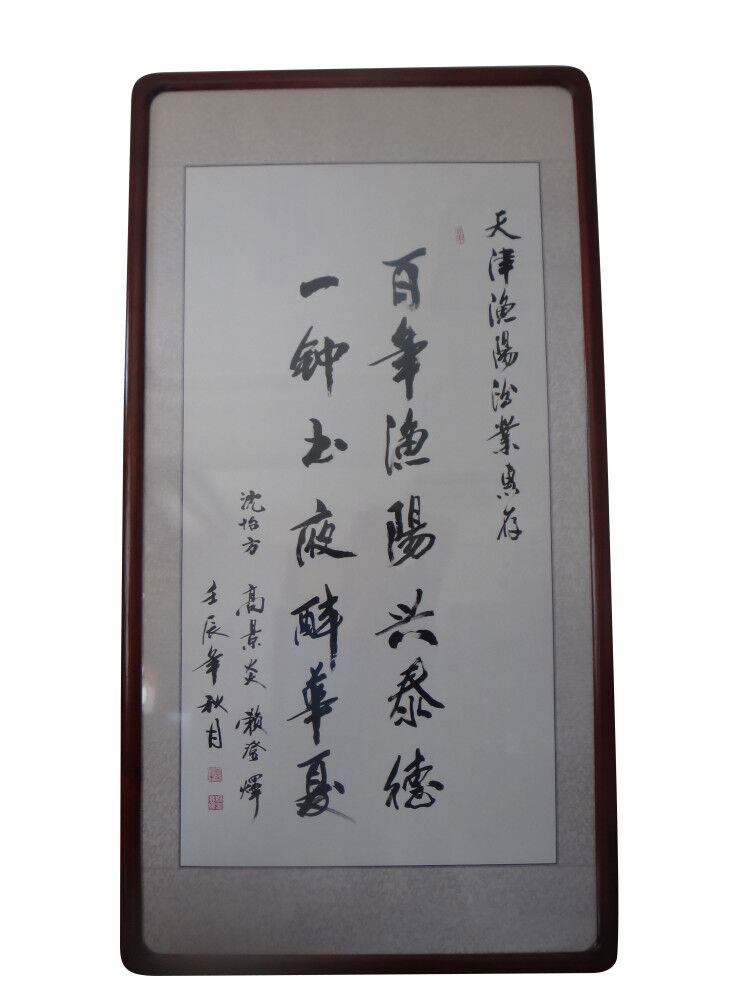 天津渔陽酒業惠存
百年渔陽兴泰德
一钟玉液醉華夏
沈怡方 高景炎 赖登燡
壬辰年秋月